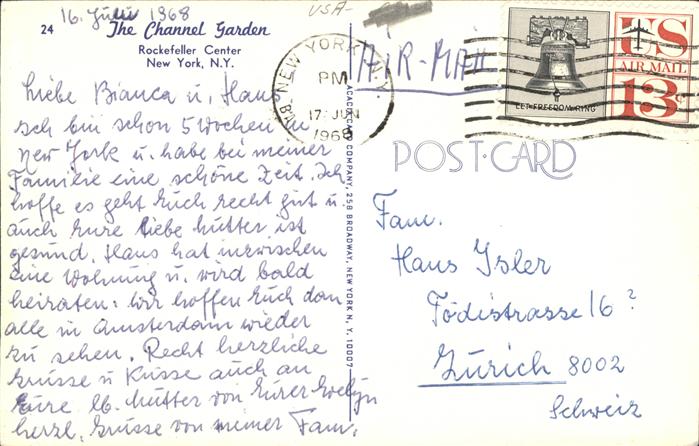 16. Juni 1968
24 The Channel Garden
Rockefeller Center
New York, N.Y.
Liebe Bianca u. Hans
Ich bin schon 5 Wochen in
New York u. habe bei meiner
Familie eine schöne Zeit. Ich
hoffe es geht Euch recht gut u.
auch Eure liebe Mutter ist
gesund. Hans hat inzwischen
eine Wohnung u. wird bald
heiraten. Wir hoffen Euch dann
alle in Amsterdam wieder
zu sehen. Recht herzliche
Grüsse u Küsse auch an
Eure lb. Mutter von Eurer Evelyn
herzl. Grüsse von meiner Fam.
USA-
AIR-MAIL
NEW YORK, N.Y.
PM
17 JUN
1968
LET FREEDOM RING
US
AIR MAIL
13c
POST-CARD
ACACIA CARD COMPANY, 258 BROADWAY, NEW YORK N. Y. 10007
Fam.
Hans Isler
Tödistrasse 16?
Zürich 8002
Schweiz